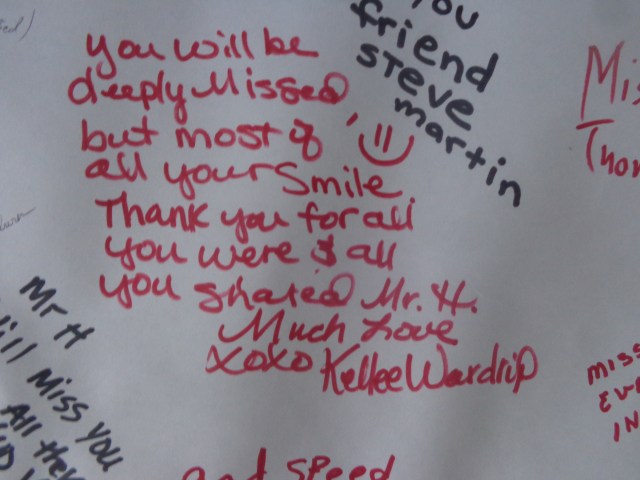 you will be
deeply Missed
but most of
all your Smile
Thank you for all
you were & all
you shared Mr. H.
Much Love
xoxo Kellee Wardrip
you
friend
steve
martin
Mr H
Miss you
All
and speed
Miss